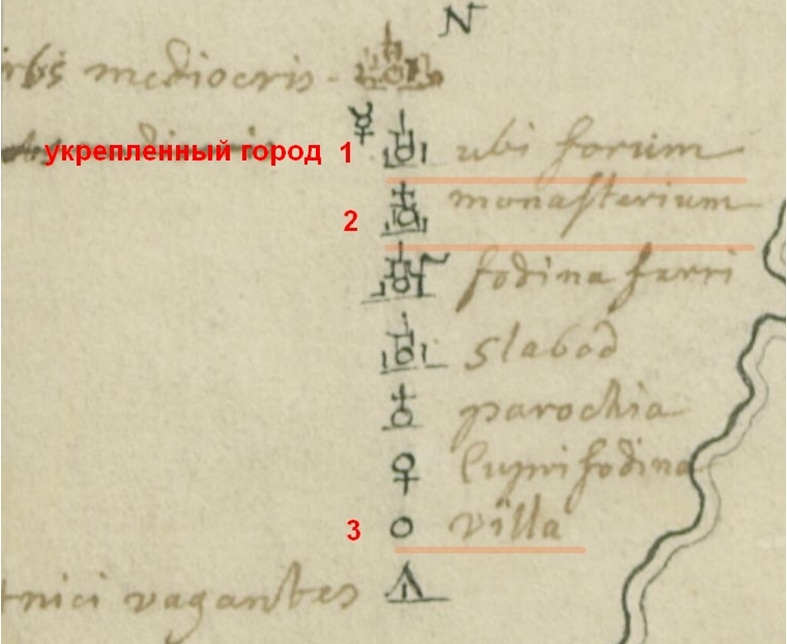 N
mediocris
укрепленный город 1 ubi forum
2 monasterium
fodina ferri
slabod
parochia
Cupri fodina
3 villa
vagantes